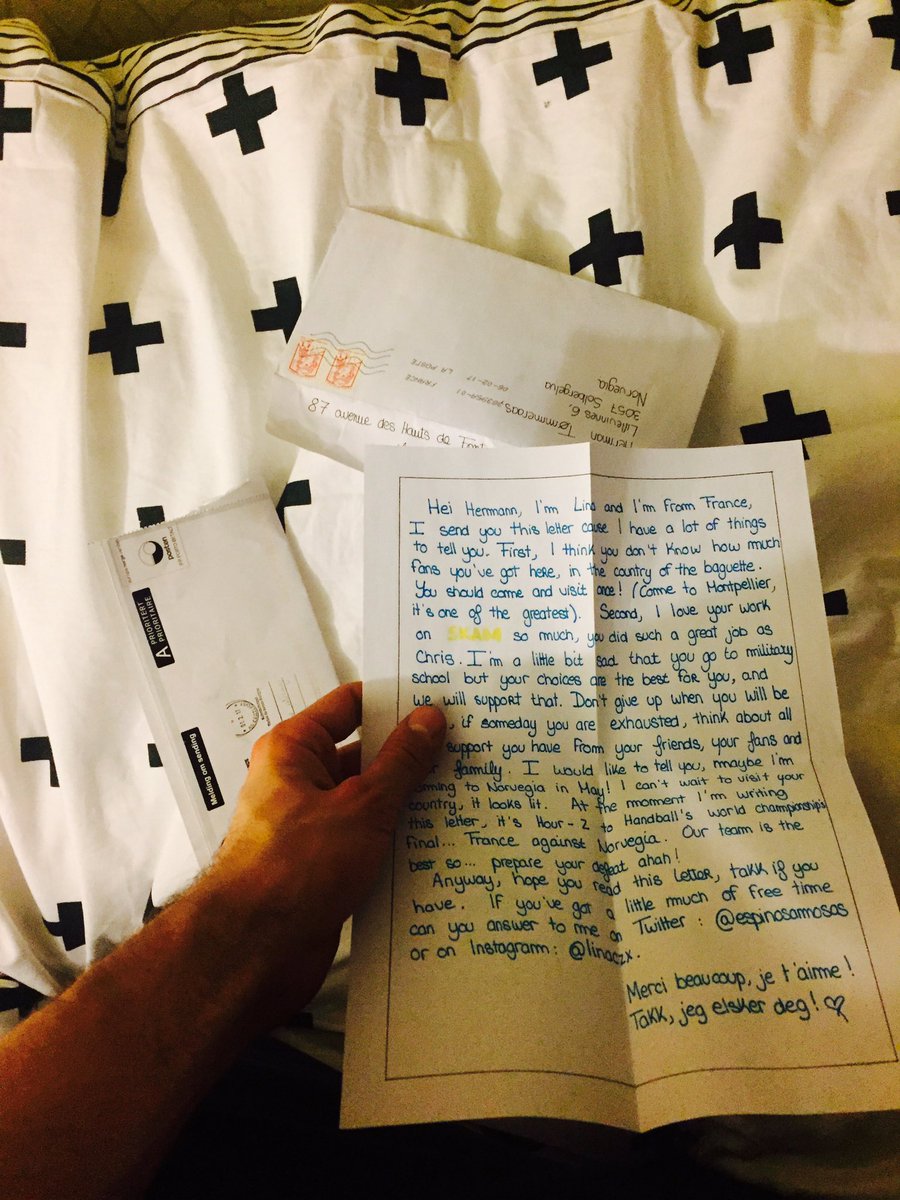 87 avenue des Hauts de
FRANCE
06-02-17 LA POSTE
Herman Tømmeraas,
Lillevinnes 6,
3057 Solbergelva
Norvegia
posten
A PRIORITERT
PRIORITAIRE
Melding om sending
Hei Hermann, I'm Lina and I'm from France,
I send you this letter cause I have a lot of things
to tell you. First, I think you don't know how much
fans you've got here, in the country of the baguette.
You should come and visit once! (Come to Montpellier,
it's one of the greatest). Second, I love your work
on SKAM so much, you did such a great job as
Chris. I'm a little bit sad that you go to military
school but your choices are the best for you, and
we will support that. Don't give up when you will be
, if someday you are exhausted, think about all
support you have from your friends, your fans and
family. I would like to tell you, maybe I'm
coming to Norvegia in May! I can't wait to visit your
country, it looks lit. At the moment I'm writing
this letter, it's Hour-2 to Handball's world championship's
final... France against Norvegia. Our team is the
best so... prepare your defeat ahah!
Anyway, hope you read this letter, takk if you
have. If you've got a little much of free time
can you answer to me on Twitter: @espinosamosas
or on Instagram: @linaczx.
Merci beaucoup, je t'aime!
Takk, jeg elsker deg! ♡